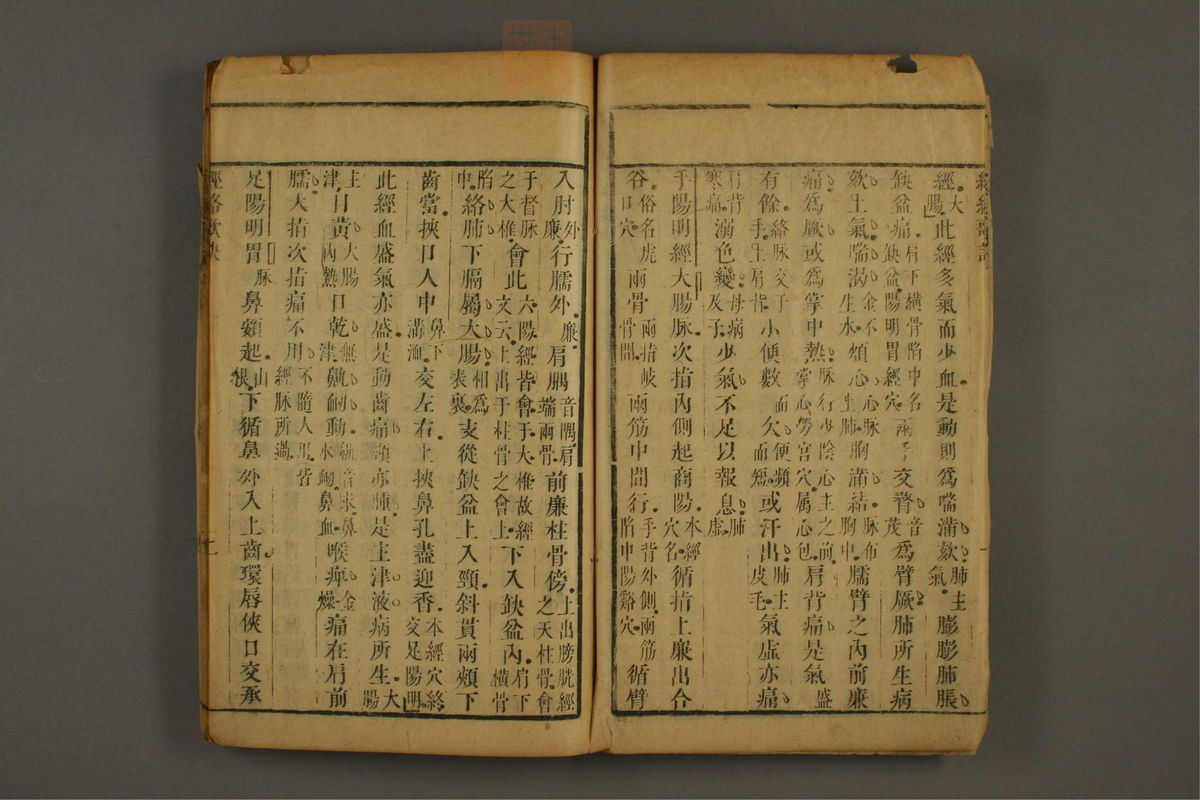 經大腸此經多氣而少血。是動則為喘滿欬。肺主氣膨膨肺脹
缺盆痛。肩下橫骨陷中名缺盆。陽明胃經穴兩手交瞀音茂為臂厥。肺所生病
欬上氣。喘渴金不生水煩心。心脈上肺胸滿結。脈布胸中臑臂之內前廉
痛為厥。或為掌中熱。脈行少陰心主之前。掌心勞宮穴属心包肩背痛是氣盛
有餘。絡脈交于手上肩背小便數而欠。便頻而短或汗出。肺主皮毛氣虛亦痛
肩背寒痛溺色變。母病及子少氣不足以報息。肺虛
手陽明經大腸脈。次指內側起商陽。本經穴名循指上廉出合
谷。俗名虎口穴兩骨兩指岐骨間兩筋中間行。手背外側兩筋陷中陽谿穴循臂
入肘外廉。行臑外廉。肩髃音隅肩端兩骨前廉柱骨傍。上出膀胱經之天柱骨會
于督脈之大椎會此六陽經皆會于大椎故經文云上出于柱骨之會上下入缺盆內肩下橫骨
陷中絡肺下膈屬大腸。相為表裏支從缺盆上入頸斜貫兩頰下
齒當。挾口人中鼻下溝洫交左右。上挾鼻孔盡迎香。本經穴終交足陽明
此經血盛氣亦盛。是動齒痛頸亦腫。是主津液病所生大腸
主津目黃大腸內熱口乾無津鼽衄動。鼽音求鼻水衄鼻血喉痺金燥痛在肩前
臑。大指次指痛不用。不隨人用皆經脈所過
足陽明胃脈鼻頞起。山根下循鼻外入上齒。環唇俠口交承
經絡歌訣